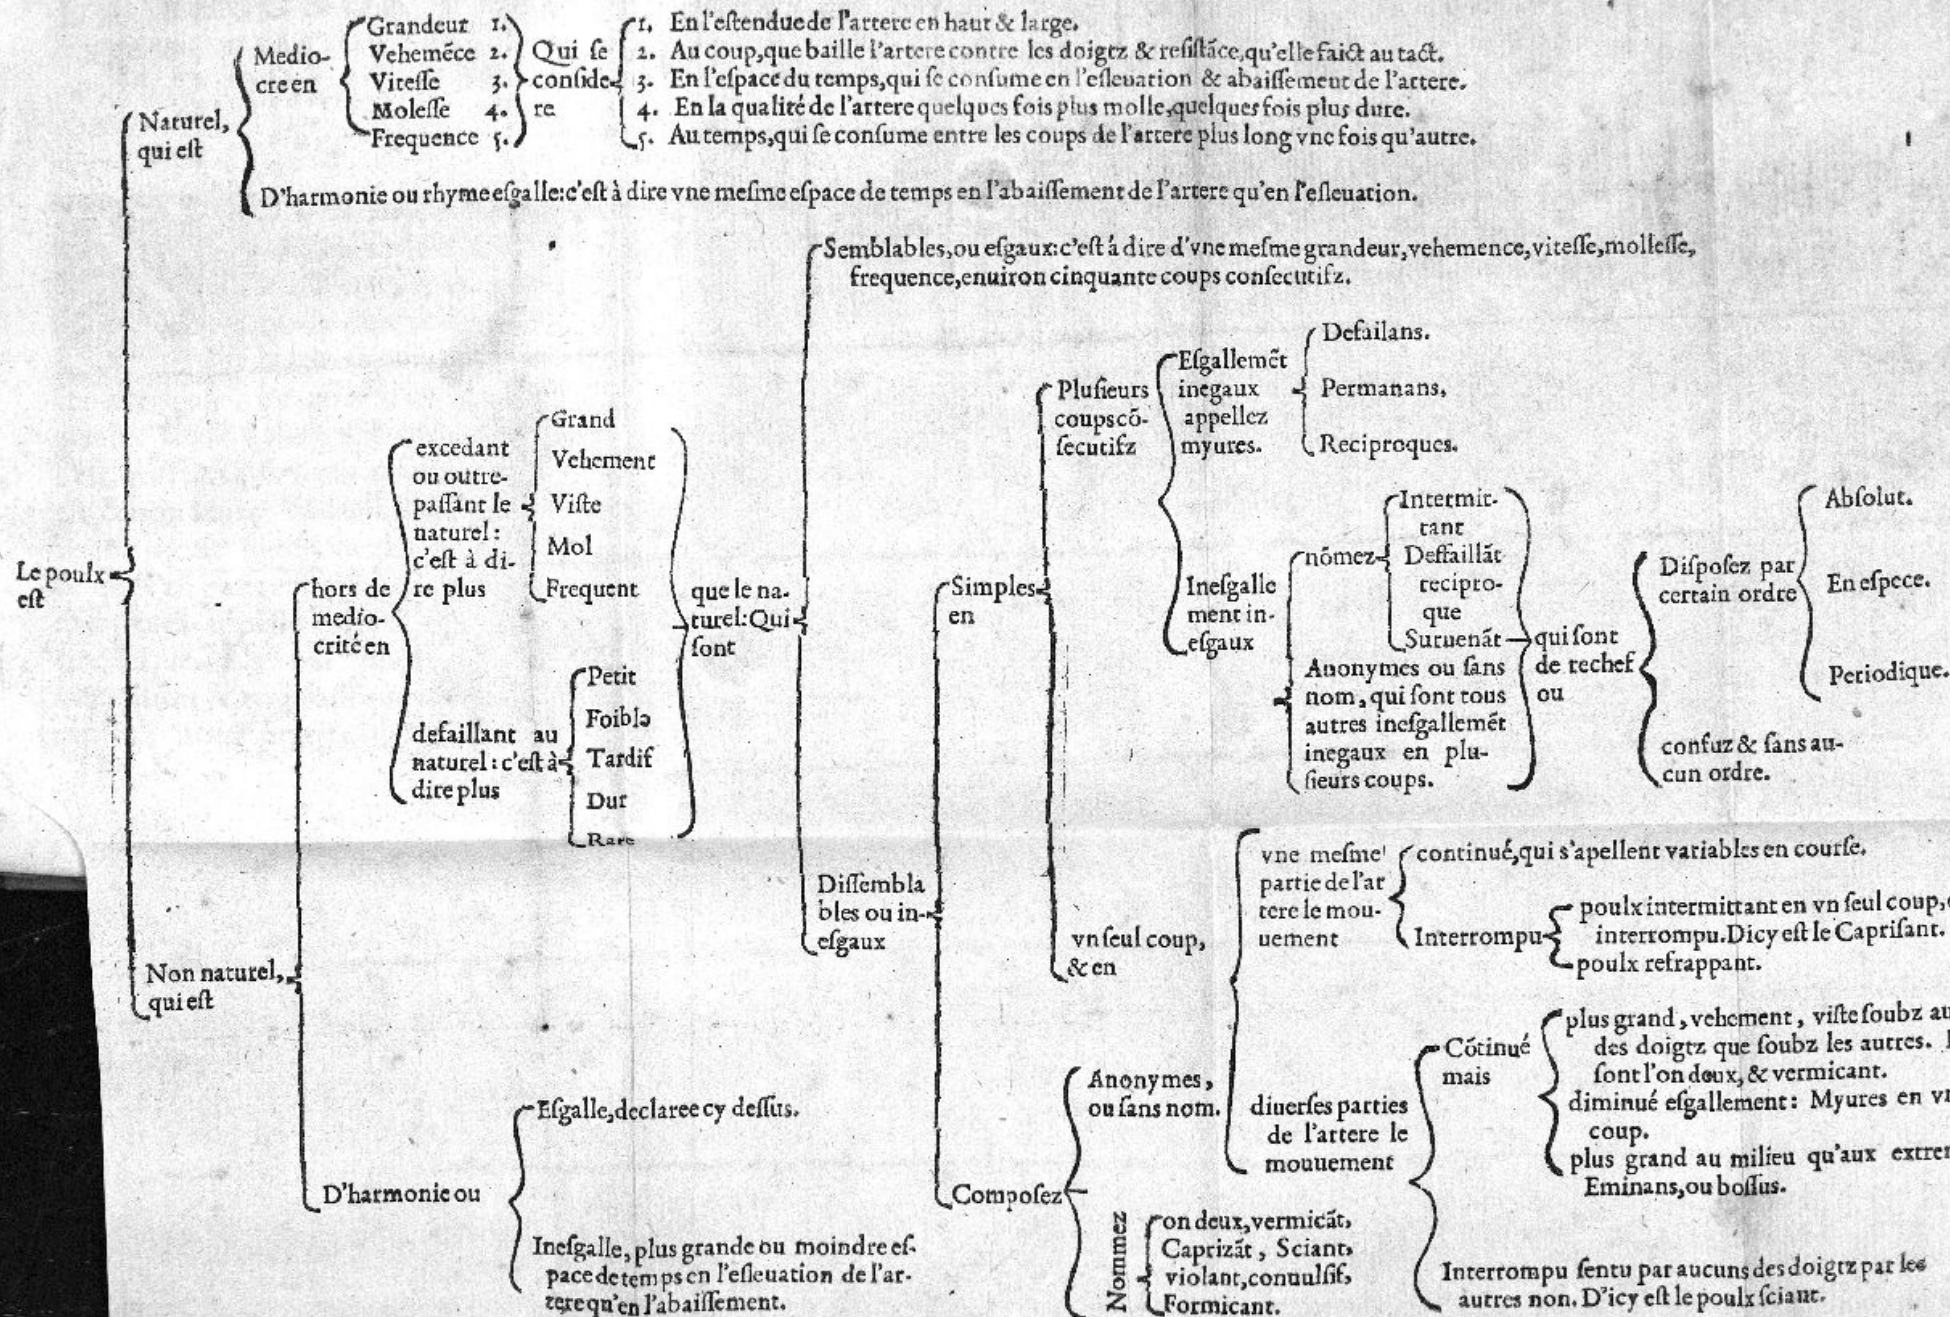 Le poulx
est
Naturel,
qui est
Medio-
cre en
Grandeur 1.
Vehemẽce 2.
Vitesse 3.
Molesse 4.
Frequence 5.
Qui se
conside-
re
1. En l'estendue de l'artere en haut & large.
2. Au coup, que baille l'artere contre les doigtz & resistãce, qu'elle faict au tact.
3. En l'espace du temps, qui se consume en l'esleuation & abaissement de l'artere.
4. En la qualité de l'artere quelques fois plus molle, quelques fois plus dure.
5. Au temps, qui se consume entre les coups de l'artere plus long vne fois qu'autre.
D'harmonie ou rhyme esgalle: c'est à dire vne mesme espace de temps en l'abaissement de l'artere qu'en l'esleuation.
Non naturel,
qui est
hors de
medio-
crité en
excedant
ou outre-
passant le
naturel:
c'est à di-
re plus
Grand
Vehement
Viste
Mol
Frequent
defaillant au
naturel: c'est à
dire plus
Petit
Foible
Tardif
Dur
Rare
que le na-
turel: Qui
sont
Semblables, ou esgaux: c'est à dire d'vne mesme grandeur, vehemence, vitesse, mollesse,
frequence, enuiron cinquante coups consecutifz.
Dissembla
bles ou in-
esgaux
Simples
en
Plusieurs
coups cõ-
secutifz
Esgallemẽt
inegaux
appellez
myures.
Defailans.
Permanans,
Reciproques.
Inesgalle
ment in-
esgaux
nõmez
Intermit-
tant
Deffaillãt
recipro-
que
Suruenãt
Anonymes ou sans
nom, qui sont tous
autres inesgallemẽt
inegaux en plu-
sieurs coups.
qui sont
de rechef
ou
Disposez par
certain ordre
Absolut.
En espece.
Periodique.
confuz & sans au-
cun ordre.
vn seul coup,
& en
vne mesme
partie de l'ar
tere le mou-
uement
continué, qui s'apellent variables en course.
Interrompu
poulx intermittant en vn seul coup,
interrompu. Dicy est le Caprisant.
poulx refrappant.
diuerses parties
de l'artere le
mouuement
Cõtinué
mais
plus grand, vehement, viste soubz au
des doigtz que soubz les autres.
sont l'on deux, & vermicant.
diminué esgallement: Myures en vn
coup.
plus grand au milieu qu'aux extre
Eminans, ou bossus.
Interrompu sentu par aucuns des doigtz par les
autres non. D'icy est le poulx sciant.
Composez
Anonymes,
ou sans nom.
Nommez
on deux, vermicãt,
Caprizãt, Sciant,
violant, conuulsif,
Formicant.
D'harmonie ou
Esgalle, declaree cy dessus.
Inesgalle, plus grande ou moindre es-
pace de temps en l'esleuation de l'ar-
tere qu'en l'abaissement.